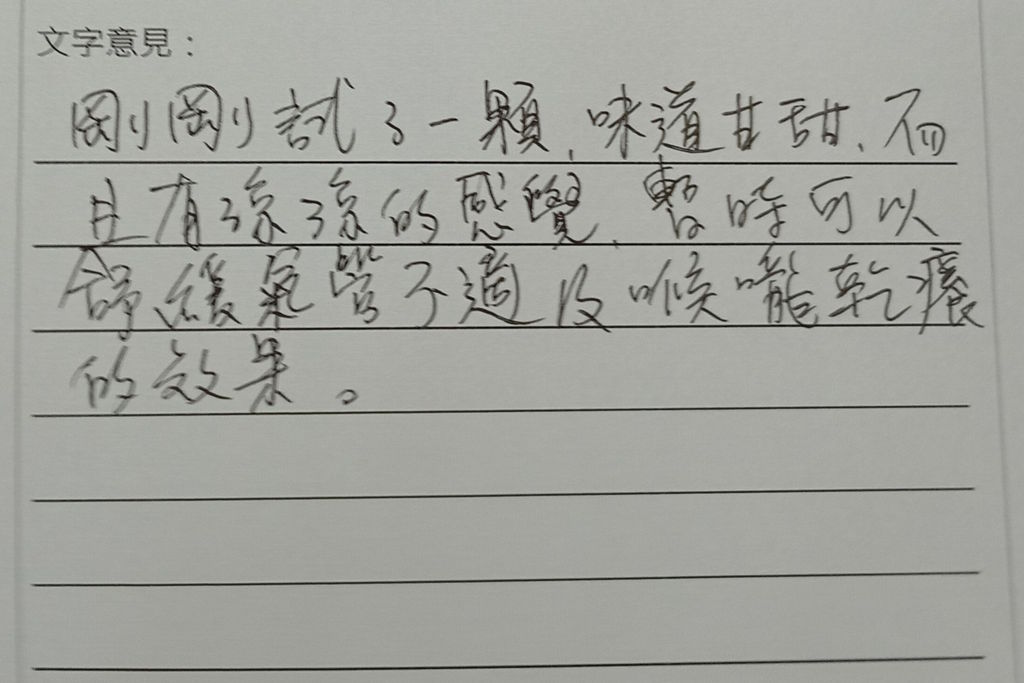 文字意見：
剛剛試了一顆,味道甘甜,而
且有涼涼的感覺,暫時可以
舒緩氣管不適及喉嚨乾癢
的效果。